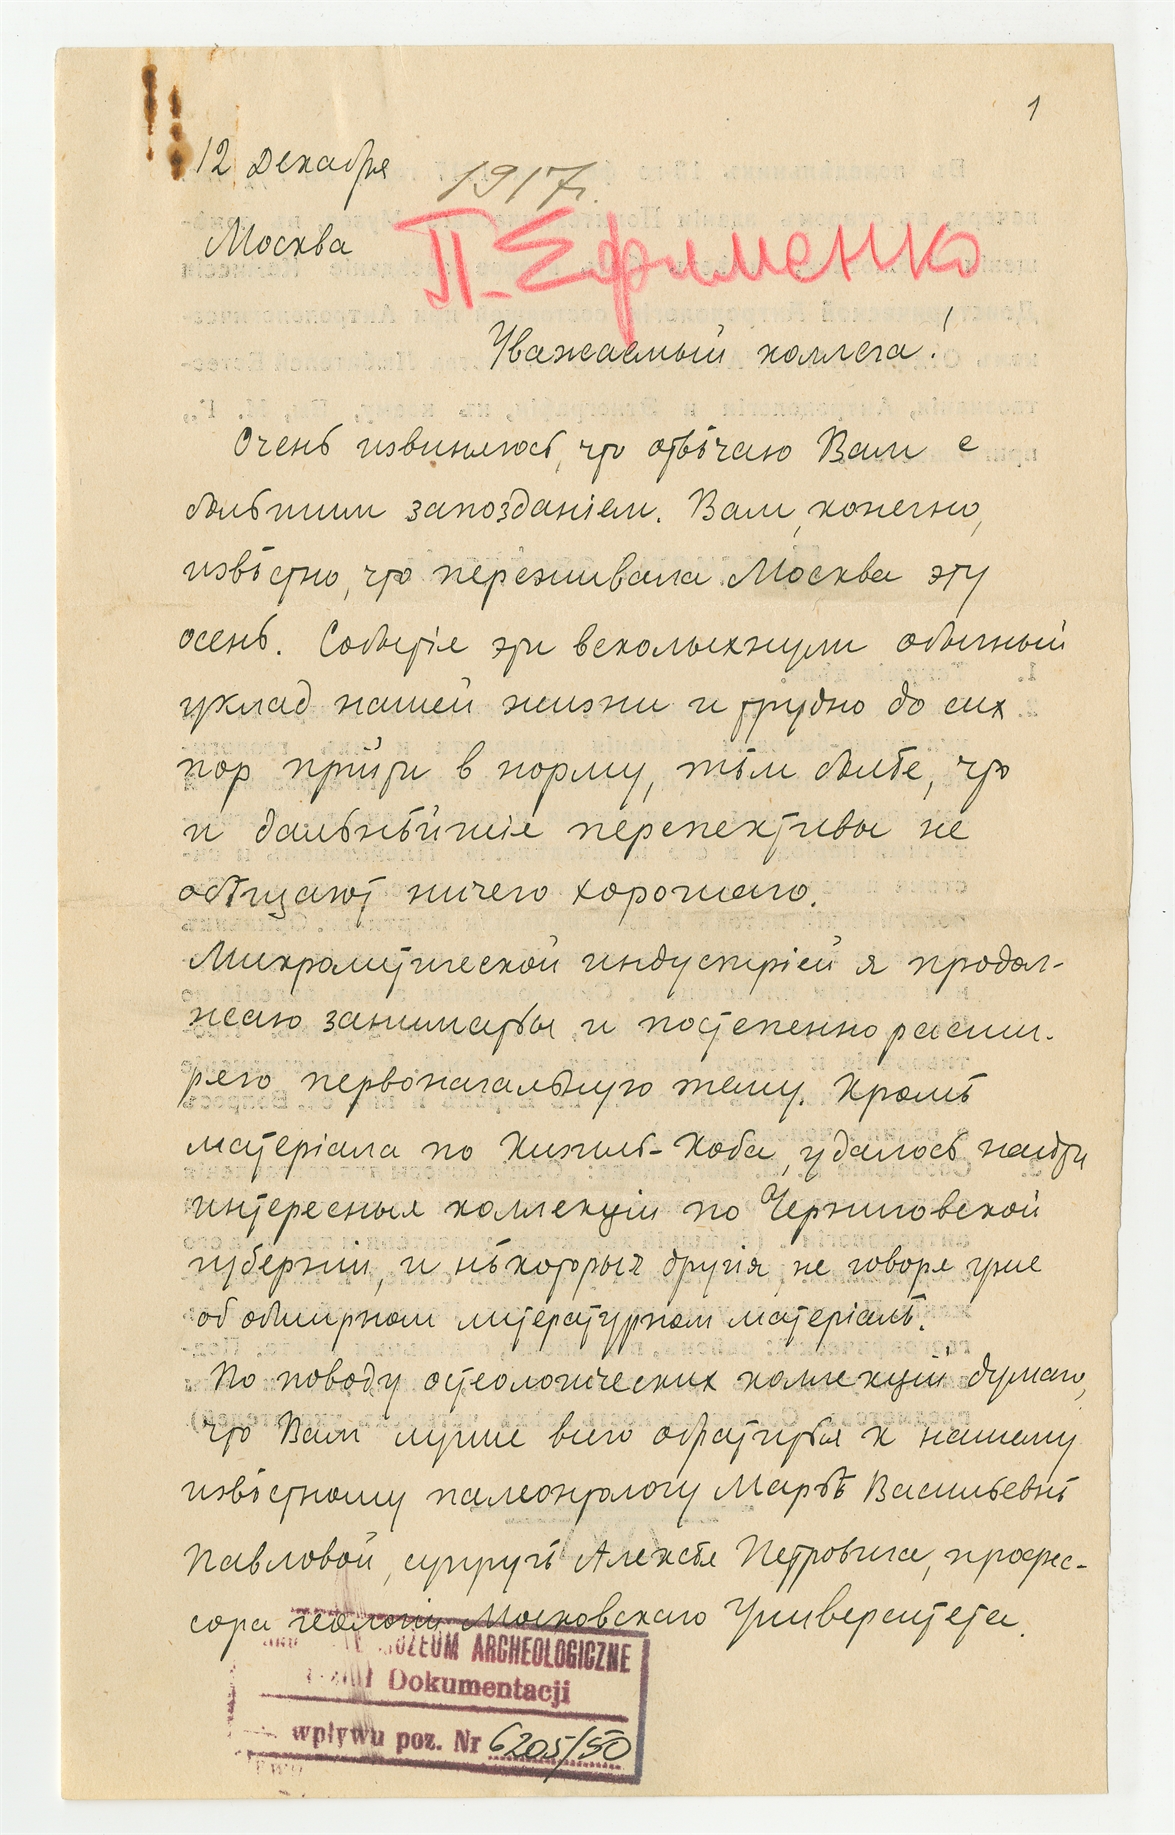 1
12 декабря
1917г.
Москва
П. Ефименко
Уважаемый коллега!
Очень извиняюсь, что отвѣчаю Вам с
большим запозданіем. Вам, конечно,
извѣстно, что переживала Москва эту
осень. Событія эти всколыхнули обычный
уклад нашей жизни и трудно до сих
пор прийти в норму, тѣм болѣе, что
и дальнѣйшіе перспективы не
обѣщают ничего хорошаго.
Микролитической индустріей я продол-
жаю заниматься и постепенно расши-
ряю первоначальную тему. Кромѣ
матеріала по Кизиль-Коба, удалось найти
интересныя коллекціи по Черниговской
губерніи, и нѣкоторыя другія, не говоря уже
об обширном литературном матеріалѣ.
По поводу остеологических коллекцій думаю,
что Вам лучше всего обратиться к нашему
извѣстному палеонтологу Марьѣ Васильевнѣ
Павловой, супругѣ Алексѣя Петровича, профес-
сора геологіи Московскаго Университета.
MUZEUM ARCHEOLOGICZNE
Dokumentacji
wpływu poz. Nr 6205/50